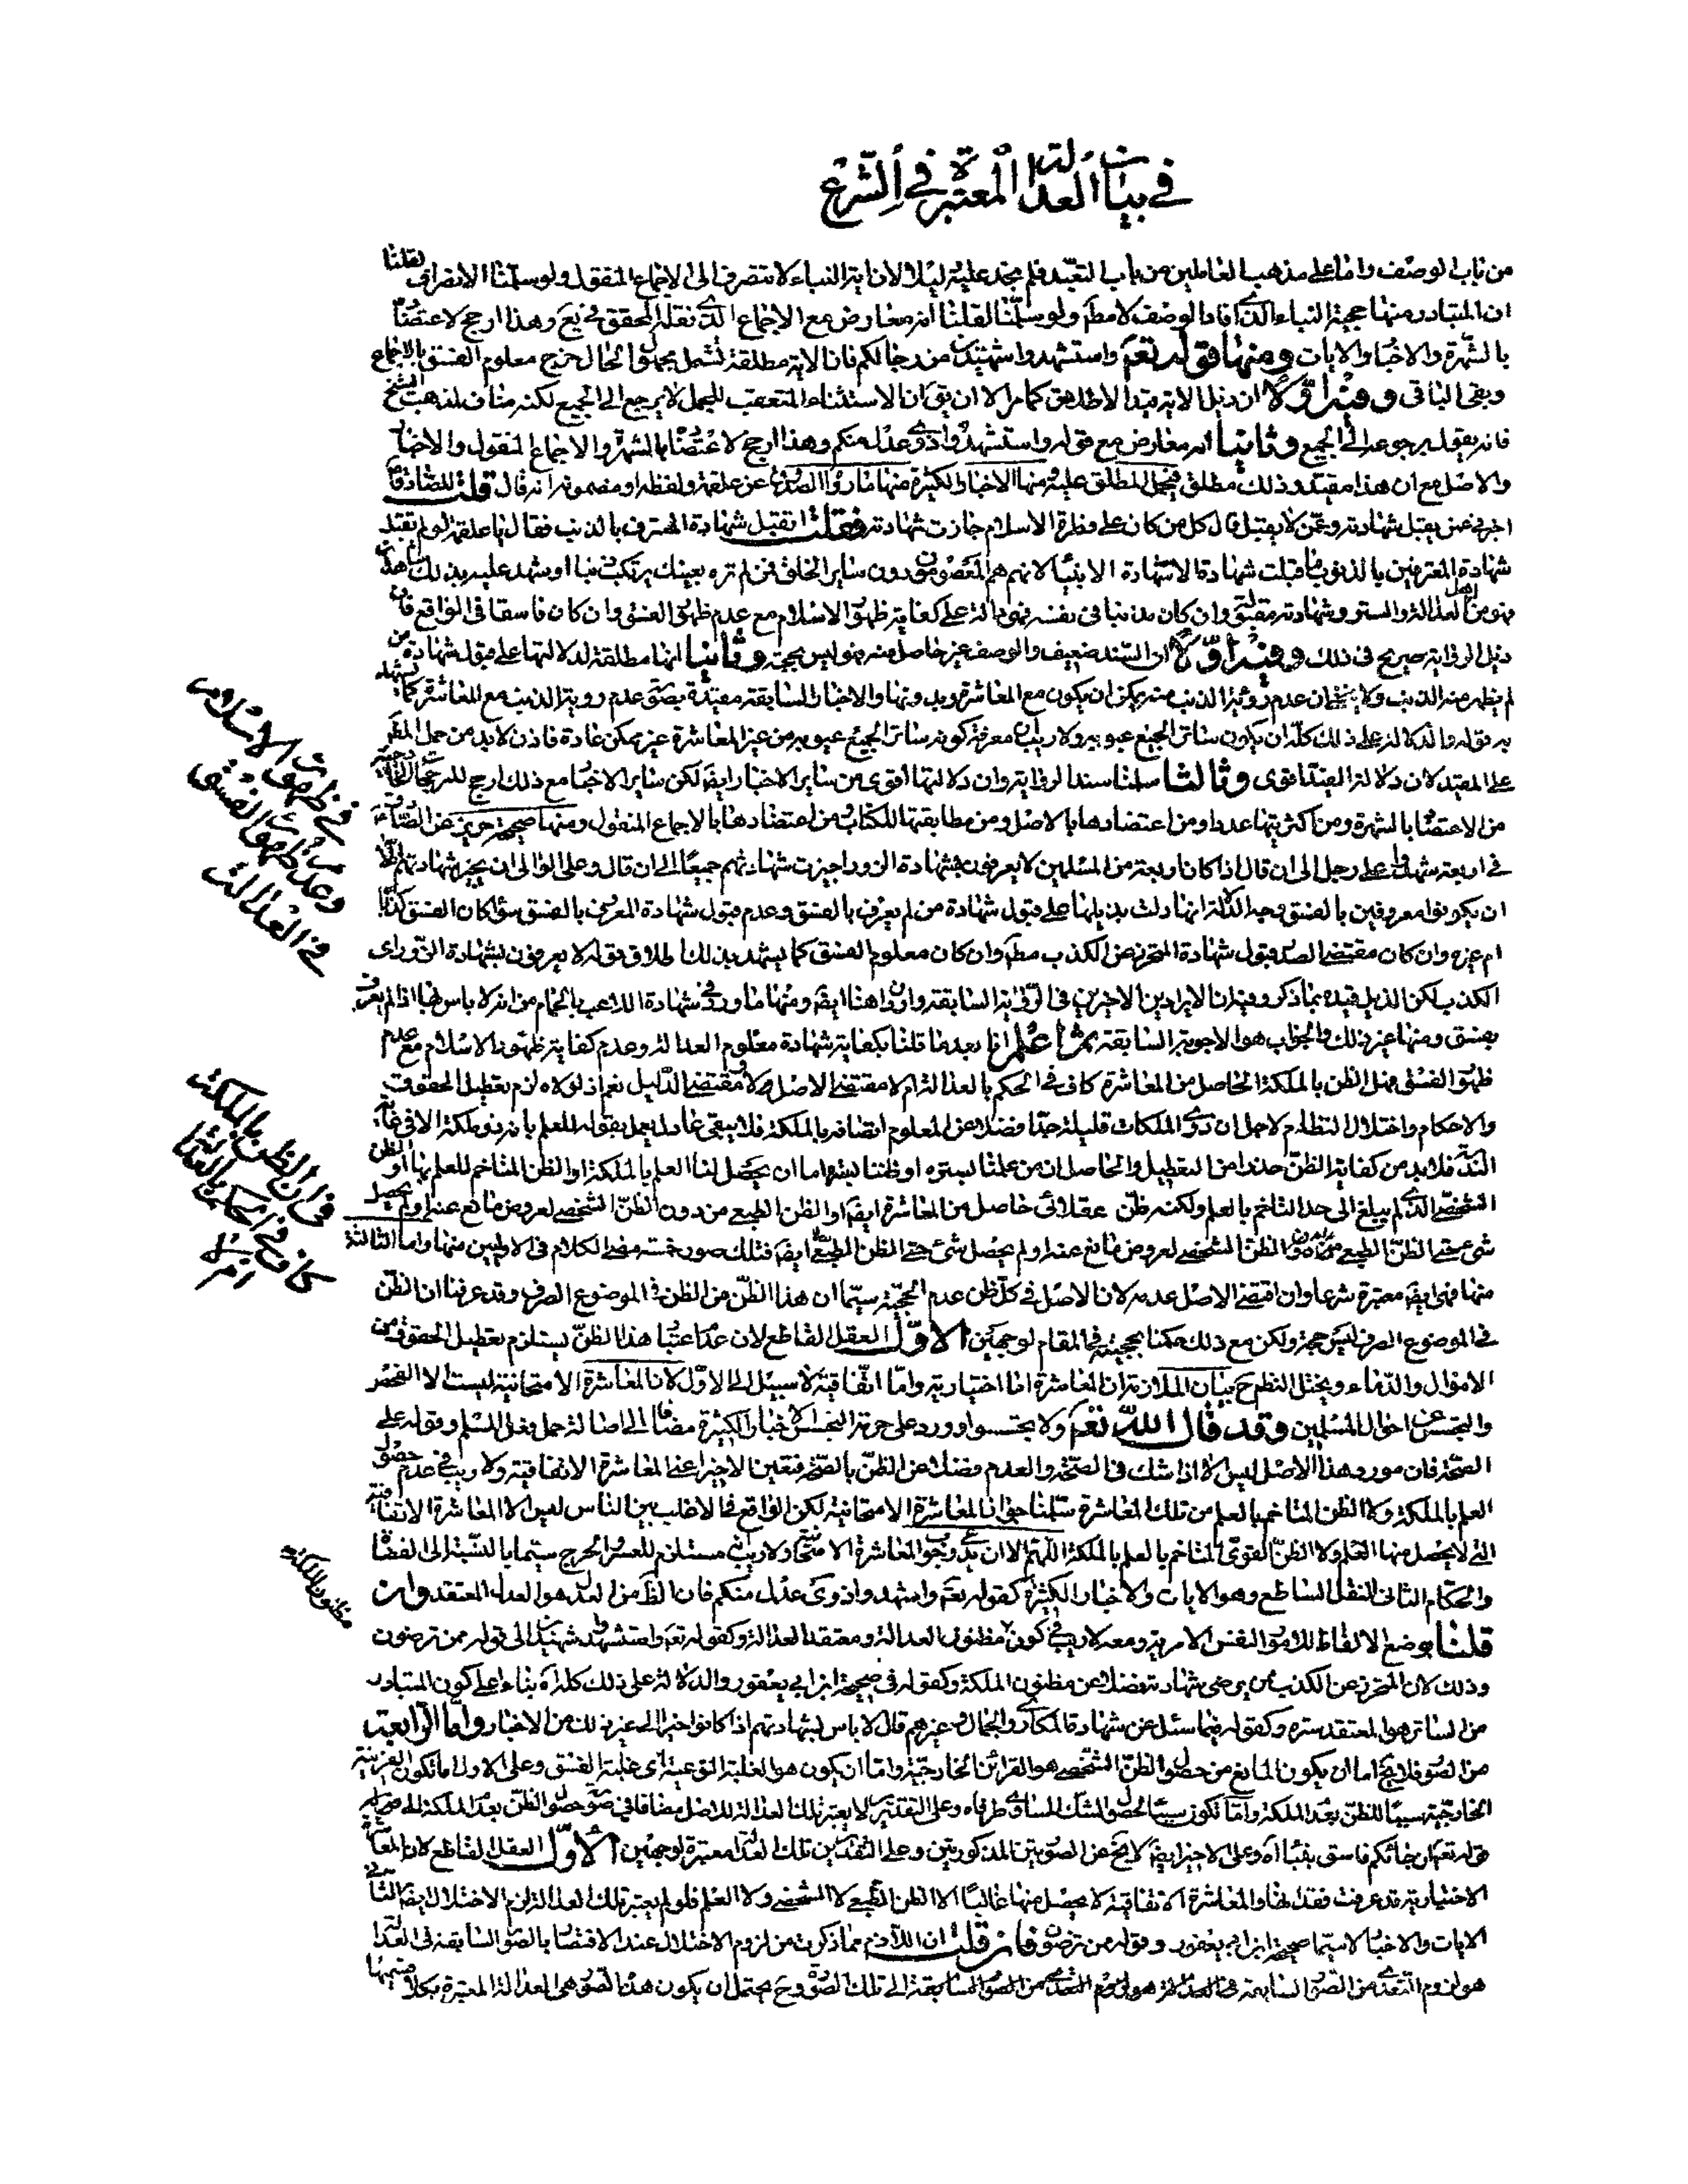 في بيان العدالة المعتبرة في الشرع
من باب الوصف واما على مذهب العاملين من باب التعبد فلم نجد عليه دليلا لان اية النباء لا تنصرف الى الاجماع المنقول ولو سلمنا الانصراف لقلنا
ان المتبادر منها حجية النباء الذي افاد الوصف لا مطم ولو سلمنا لقلنا انه معارض مع الاجماع الذي نقله المحقق في يع وهذا ارجح لاعتضا
بالشهرة والاخبار والايات ومنها قوله تعم واستشهدوا شهيدين من رجالكم فان الاية مطلقة تشمل مجهول الحال خرج معلوم الفسق بالاجماع
وبقى الباقى وفيه اولا ان ذيل الاية يقيد الاطلاق كما مر الا ان يق ان الاستثناء المتعقب للجمل لا يرجع الى الجميع لكنه مناف لمذهب الشيخ
فانه يقول برجوعه الى الجميع وثانيا انه معارض مع قوله واستشهدوا ذوي عدل منكم وهذا ارجح لاعتضا بالشهرة والاجماع المنقول والاخبار
والاصل مع ان هذا مقيد وذلك مطلق فيحمل المطلق عليه ومنها الاخبار الكثيرة منها ما رواه الصدوق عن علقمة ولفظه او مضمونه انه قال قلت للصادق
اخبرني عمن يقبل شهادته وعمن لا يقبل قال كل من كان على فطرة الاسلام جازت شهادته فقلت اتقبل شهادة المقترف بالذنب فقال يا علقمة لو لم تقبل
شهادة المقترفين بالذنوب ما قبلت شهادة الا شهادة الانبياء لانهم هم المعصومون دون ساير الخلق فمن لم تره بعينك يرتكب ذنبا او يشهد عليه بذلك شاهدان
فهو من اهل العدالة والستر وشهادته مقبولة وان كان مذنبا في نفسه فهو دالة على كفاية ظهور الاسلام مع عدم ظهور الفسق وان كان فاسقا في الواقع فان
ذيل الرواية صريح في ذلك وفيه اولا ان السند ضعيف والوصف غير حاصل منه فهو ليس بحجة وثانيا انها مطلقة لدلالتها على قبول شهادة من
لم يظهر منه الذنب ولا يخفى ان عدم رؤية الذنب منه يمكن ان يكون مع المعاشرة وبدونها والاخبار السابقة مقيدة بصورة عدم رؤية الذنب مع المعاشرة كما يشهد
به قوله والدلالة على ذلك كله ان يكون ساترا لجميع عيوبه ولا ريب ان معرفة كونه ساترا لجميع عيوبه من غير المعاشرة غير ممكن عادة فاذن لابد من حمل المطم
على المقيد لان دلالة المقيد اقوى وثالثا سلمنا سند الرواية وان دلالتها اقوى من ساير الاخبار ايضا لكن ساير الاخبار مع ذلك ارجح للمرجحات الخارجية
من الاعتضا بالشهرة ومن اكثريتها عددا ومن اعتضادها بالاصل ومن مطابقتها للكتاب ومن اعتضادها بالاجماع المنقول ومنها صحيحة حريز عن الصادق
في اربعة شهدوا على رجل الى ان قال اذا كان اربعة من المسلمين لا يعرفون بشهادة الزور اجيزت شهادتهم جميعا الى ان قال وعلى الوالي ان يجيز شهادتهم الا
ان يكونوا معروفين بالفسق وجه الدلالة انها دلت بذيلها على قبول شهادة من لم يعرف بالفسق وعدم قبول شهادة المعروف بالفسق سواء كان الفسق كذبا
ام غيره وان كان مقتضى الصدر قبول شهادة المتحرز عن الكذب مطم وان كان معلوم الفسق كما يشهد بذلك اطلاق قوله لا يعرفون بشهادة الزور اى
الكذب لكن الذيل قيده بما ذكر وفيه ان الايرادين الاخيرين في الرواية السابقة واردان هنا ايضا ومنها ما ورد في شهادة اللاعب بالحمام من انه لا باس بها اذا لم يعرف
بفسق ومنها غير ذلك والجواب هو الاجوبة السابقة ثم اعلم انا بعد ما قلنا بكفاية شهادة معلوم العدالة وعدم كفاية ظهور الاسلام مع عدم
ظهور الفسق فهل الظن بالملكة الحاصل من المعاشرة كاف في الحكم بالعدالة ام لا مقتضى الاصل لا ومقتضى الدليل نعم اذ لولاه لزم تعطيل الحقوق
والاحكام واختلال النظام لاجل ان ذوي الملكات قليلة جدا فضلا عن المعلوم اتصافه بالملكة فلا يبقى عادل يعمل بقوله للعلم بانه ذو ملكة الا في غاية
الندرة فلابد من كفاية الظن حذرا من التعطيل والحاصل ان من علمنا بستره او ظننا بستره اما ان يحصل لنا العلم بالملكة او الظن المتاخم للعلم بها او الظن
الشخصي الذي لم يبلغ الى حد التاخم بالعلم ولكنه ظن عقلائي حاصل من المعاشرة ايضا او الظن الطبعي من دون الظن الشخصي لعروض مانع عنه او لم يحصل
شيء حتى الظن الطبعي ايضا فتلك صور خمسة مضى الكلام في الاوليين منها واما الثالثة
منها فهى ايضا معتبرة شرعا وان اقتضى الاصل عدمه لان الاصل في كل ظن عدم الحجية سيما ان هذا الظن من الظن في الموضوع الصرف وقد عرفنا ان الظن
في الموضوع الصرف ليس حجة ولكن مع ذلك حكمنا بحجيته في المقام لوجهين الاول العقل القاطع لان عدم اعتبار هذا الظن يستلزم تعطيل الحقوق من
الاموال والدماء ويختل النظم ح بيان الملازمة ان المعاشرة اما اختيارية واما اتفاقية لا سبيل الى الاول لان المعاشرة الامتحانية ليست الا التفحص
والتجسس عن احوال المسلمين وقد قال الله تعم ولا تجسسوا وورد على حرمة التجسس الاخبار الكثيرة مضافا الى اصالة حمل فعل المسلم وقوله على
الصحة فان مورد هذا الاصل ليس الا اذا شك في الصحة والعدم فضلا عن الظن بالصحة فتعين الاخير اعني المعاشرة الاتفاقية ولا ريب في عدم حصول
العلم بالملكة ولا الظن المتاخم بالعلم من تلك المعاشرة سلمنا جواز المعاشرة الامتحانية لكن الواقع في الاغلب بين الناس ليس الا المعاشرة الاتفاقية
التي لا يحصل منها العلم ولا الظن القوي المتاخم بالعلم بالملكة اللهم الا ان يدعى وجوب المعاشرة الامتحانية ولا ريب انه مستلزم للعسر والحرج سيما بالنسبة الى القضاة
والحكام الثاني النقل الساطع وهو الايات والاخبار الكثيرة كقوله تعم واشهدوا ذوي عدل منكم فان الظ من العدل هو العدل المعتقد وان
قلنا بوضع الالفاظ للامور النفس الامرية ومعه لا ريب في كون مظنون العدالة ومعتقد العدالة وكقوله تعم واستشهدوا شهيدين الى قوله ممن ترضون
وذلك لان المتحرز عن الكذب ممن يرضى شهادته فضلا عن مظنون الملكة وكقوله في صحيحة ابن ابي يعفور والدلالة على ذلك كله اه بناء على كون المتبادر
من الساتر هو المعتقد ستره وكقوله فيما سئل عن شهادة المكاري والجمال وغيرهم قال لا باس بشهادتهم اذا كانوا خيرا الى غير ذلك من الاخبار واما الرابعة
من الصور فلا يخ اما ان يكون المانع من حصول الظن الشخصي هو القرائن الخارجية واما ان يكون هو الغلبة النوعية اى غلبة الفسق وعلى الاول اما تكون القرينة
الخارجية سببا للظن بعدم الملكة واما تكون سببا لحصول الشك المساوي طرفاه وعلى التقديرين لا يعتبر تلك العدالة للاصل مضافا في صورة حصول الظن بعدم الملكة الى
قوله تعم ان جائكم فاسق بنباء اه وعلى الاخير ايضا لا يخ عن الصورتين المذكورتين وعلى التقديرين تلك العدالة معتبرة لوجهين الاول العقل القاطع لان المعاشرة
الاختيارية قد عرفت فقدانها والمعاشرة الاتفاقية لا يحصل منها غالبا الا الظن الطبعي لا الشخصي ولا العلم فلو لم يعتبر تلك العدالة لزم الاختلال ايضا الثاني
الايات والاخبار لاسيما صحيحة ابن ابي يعفور وقوله ممن ترضون فان قلت ان اللازم مما ذكرت من لزوم الاختلال عند الاقتصار بالصور السابقة في العدالة
هو لزوم التعدي من الصور السابقة الى تلك الصورة وح يحتمل ان يكون هذا الصور هي العدالة المعتبرة بكلا قسميها
في ظهور الاسلام
وعدم ظهور الفسق
في العدالة
في ان الظن بالملكة
كاف في الحكم بالعدالة
ام لا
مظنون الملكة